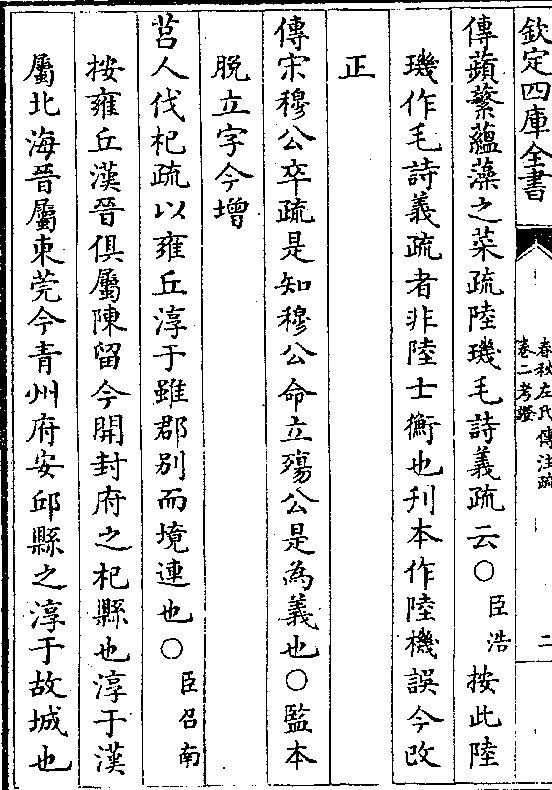 欽定四庫全書
春秋左氏傳注疏
卷二考證
二
傳蘋蘩薀藻之菜疏陸璣毛詩義疏云○臣浩按此陸
璣作毛詩義疏者非陸士衡也刋本作陸機誤今改
正
傳宋穆公卒疏是知穆公命立殤公是為義也○監本
脱立字今增
莒人伐杞疏以雍丘淳于雖郡别而境連也○臣召南
按雍丘漢晉俱屬陳留今開封府之杞縣也淳于漢
屬北海晉屬東莞今青州府安邱縣之淳于故城也